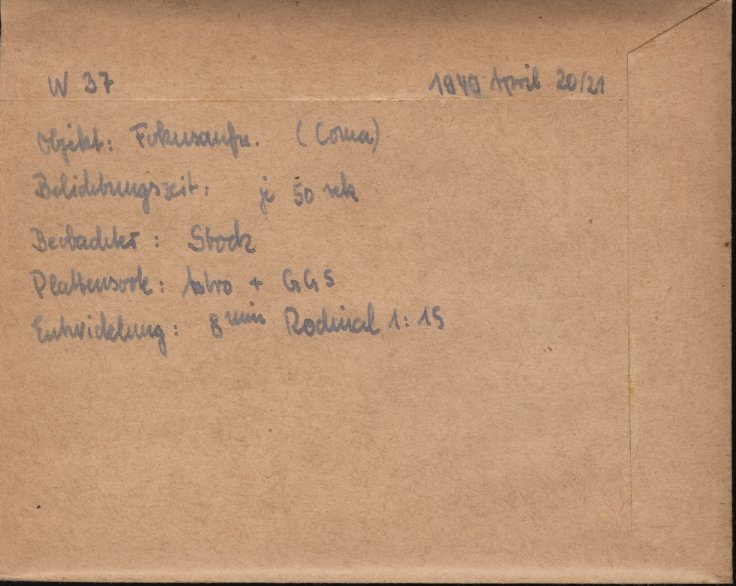 W 37 1949 April 20/21
Objekt: Fokusaufn. (Coma)
Belichtungszeit: je 50 sek
Beobachter: Stock
Plattensorte: Astro + GG5
Entwicklung: 8 min Rodinal 1:15